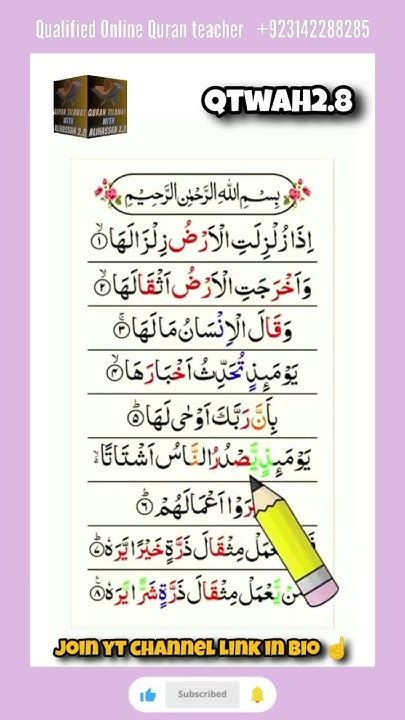 Qualified Online Quran teacher +923142288285
QURAN TILAWAT WITH ALIHASSAN 2.0
QURAN TILAWAT WITH ALIHASSAN 2.0
QTWAH2.8
بِسْمِ اللهِ الرَّحْمٰنِ الرَّحِيْمِ
اِذَا زُلْزِلَتِ الْاَرْضُ زِلْزَالَهَا ۙ﴿۱﴾
وَاَخْرَجَتِ الْاَرْضُ اَثْقَالَهَا ۙ﴿۲﴾
وَقَالَ الْاِنْسَانُ مَا لَهَا ۚ﴿۳﴾
يَوْمَئِذٍ تُحَدِّثُ اَخْبَارَهَا ۙ﴿۴﴾
بِاَنَّ رَبَّكَ اَوْحٰى لَهَا ؕ﴿۵﴾
يَوْمَئِذٍ يَّصْدُرُ النَّاسُ اَشْتَاتًا ۙ
اَعْمَالَهُمْ ؕ﴿۶﴾
مِثْقَالَ ذَرَّةٍ خَيْرًا يَّرَهٗ ؕ﴿۷﴾
يَّعْمَلْ مِثْقَالَ ذَرَّةٍ شَرًّا يَّرَهٗ ﴿۸﴾
JOIN YT CHANNEL LINK IN BIO ☝
Subscribed